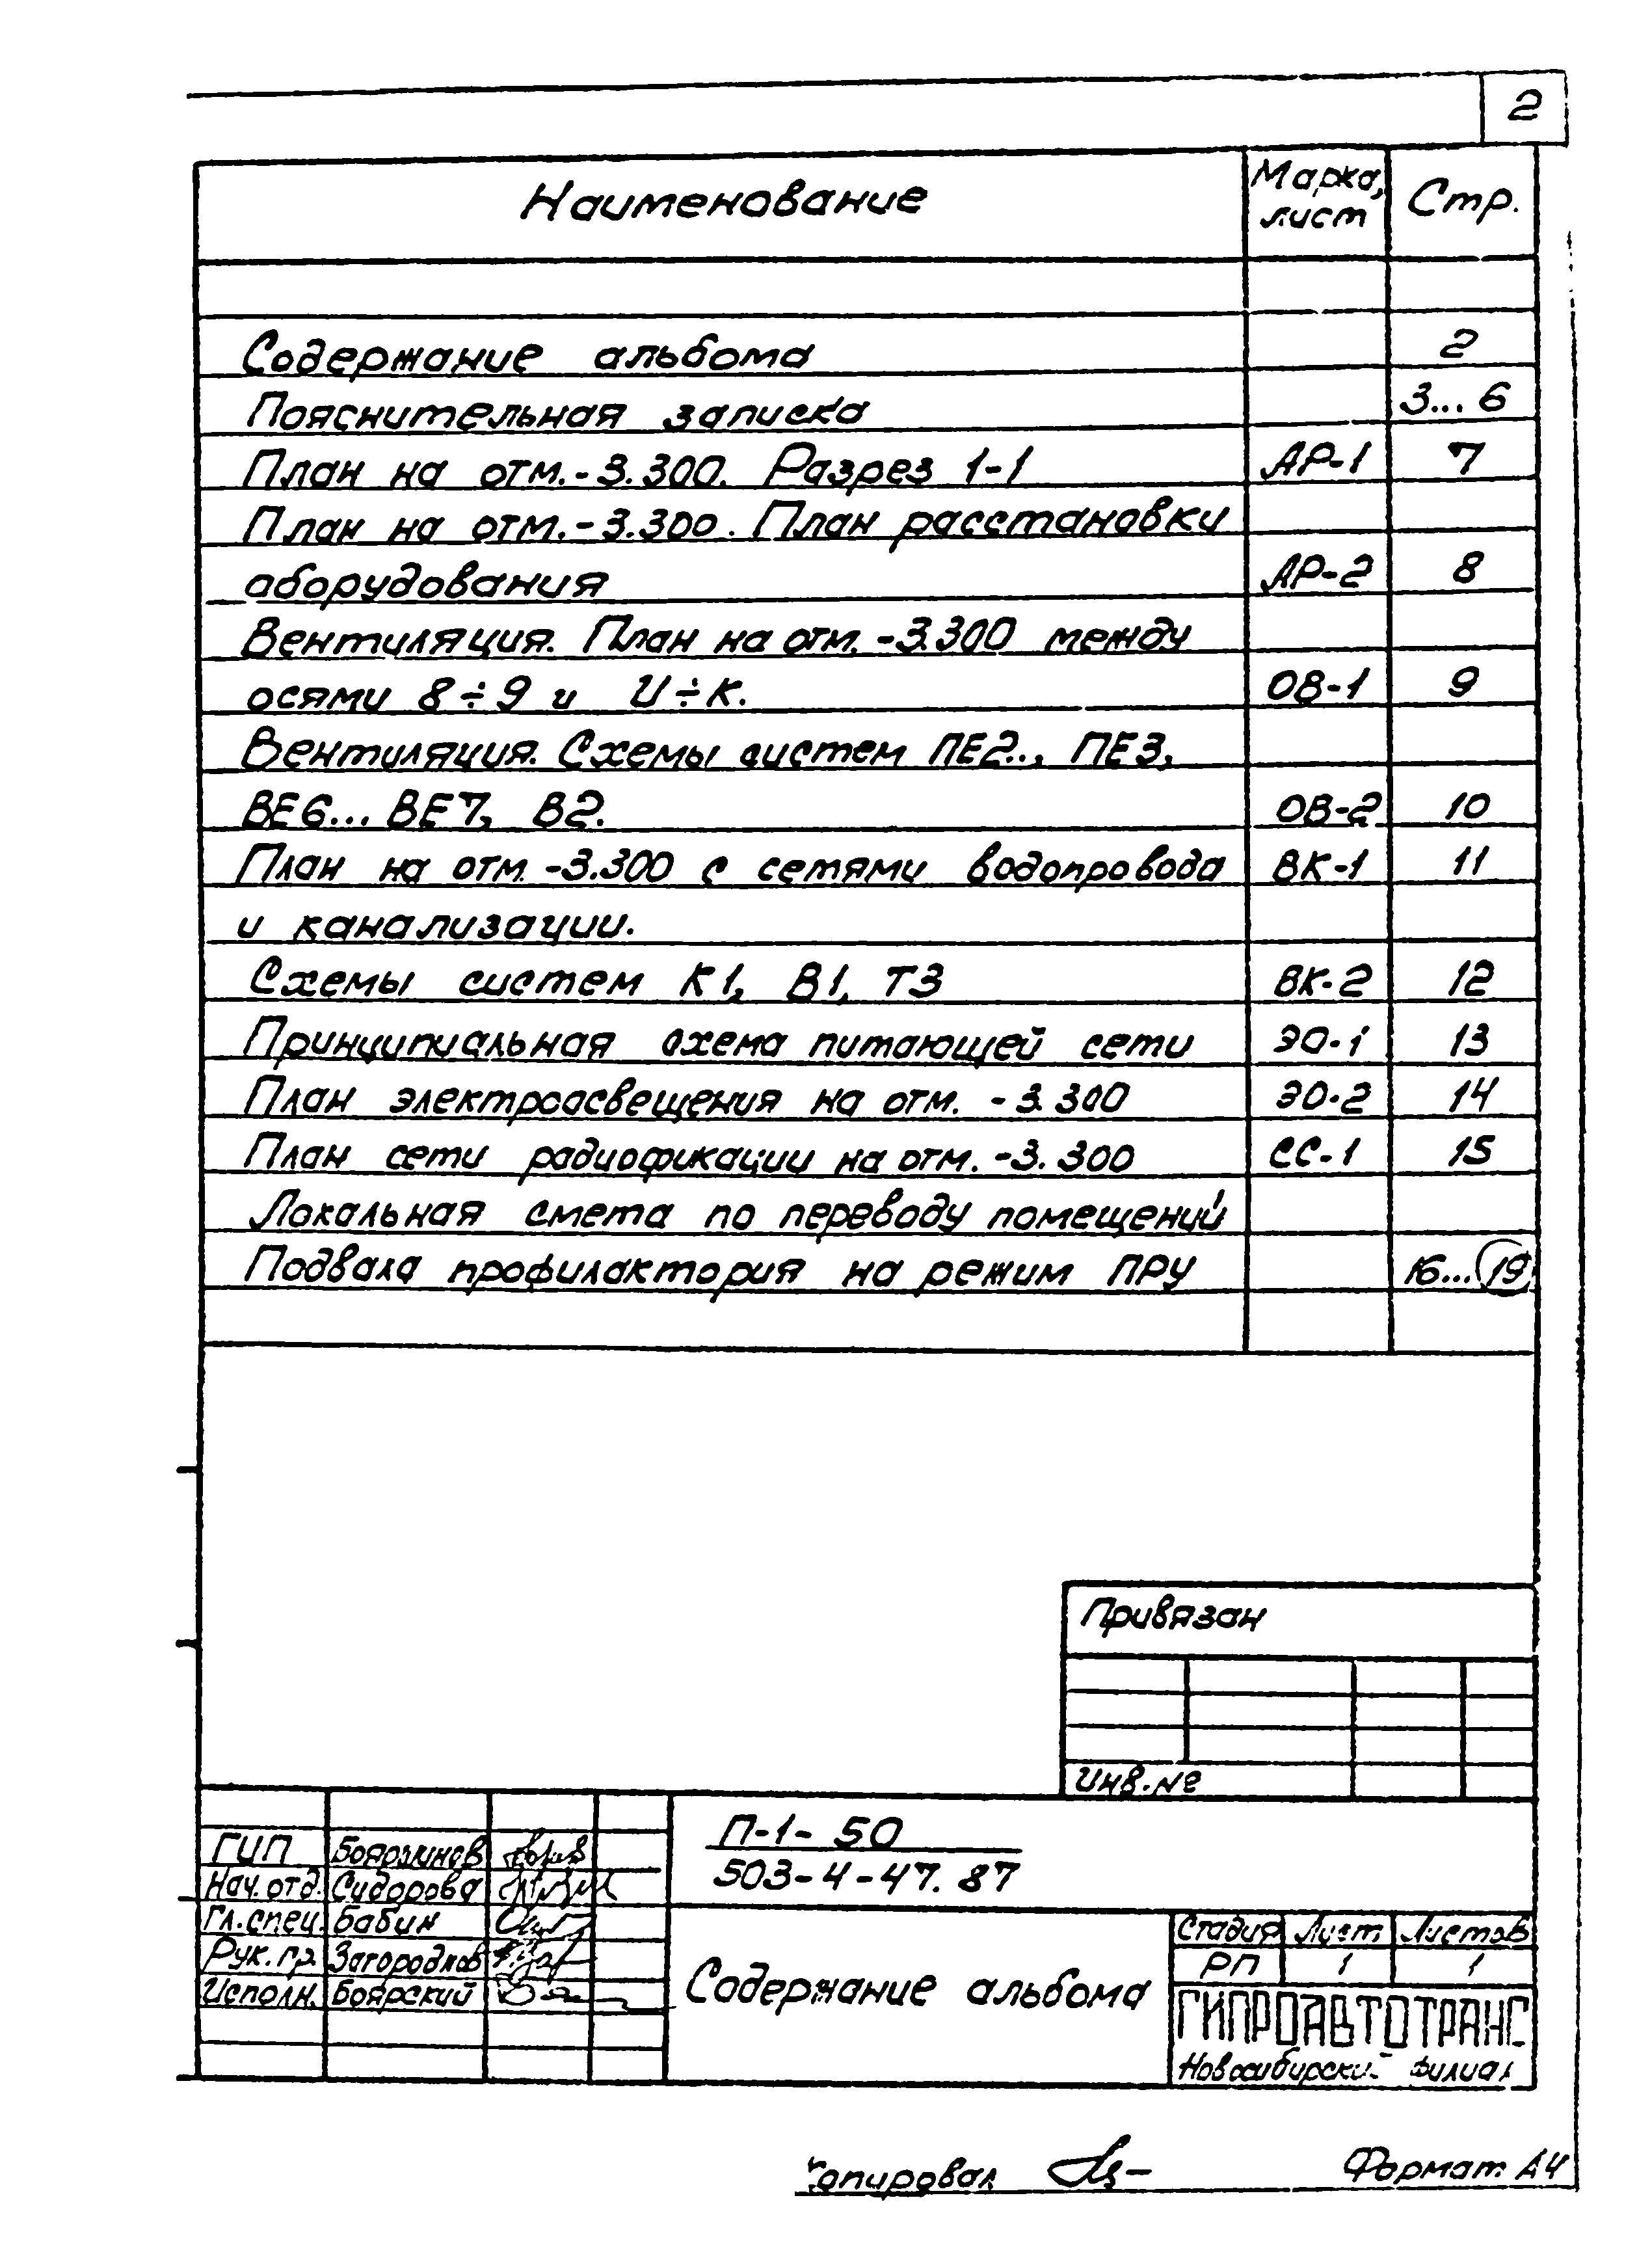 2
Наименование Марка, лист Стр.
Содержание альбома 2
Пояснительная записка 3...6
План на отм.-3.300. Разрез 1-1 АР-1 7
План на отм.-3.300. План расстановки
оборудования АР-2 8
Вентиляция. План на отм. -3.300 между
осями 8÷9 и И÷К. ОВ-1 9
Вентиляция. Схемы систем ПЕ2.., ПЕ3,
ВЕ6... ВЕ7, В2. ОВ-2 10
План на отм. -3.300 с сетями водопровода ВК-1 11
и канализации.
Схемы систем К1, В1, Т3 ВК-2 12
Принципиальная схема питающей сети ЭО-1 13
План электроосвещения на отм. -3.300 ЭО-2 14
План сети радиофикации на отм. -3.300 СС-1 15
Локальная смета по переводу помещений
Подвала профилактория на режим ПРУ 16...19
Привязан
Инв.№
П-1-50
503-4-47.87
ГИП
Нач.отд. Сидорова
Гл.спец. Бабин
Рук.гр. Загородков
Исполн. Боярский
Содержание альбома
Стадия Лист Листов
РП 1 1
ГИПРОАВТОТРАНС
Новосибирский филиал
Копировал
Формат А4